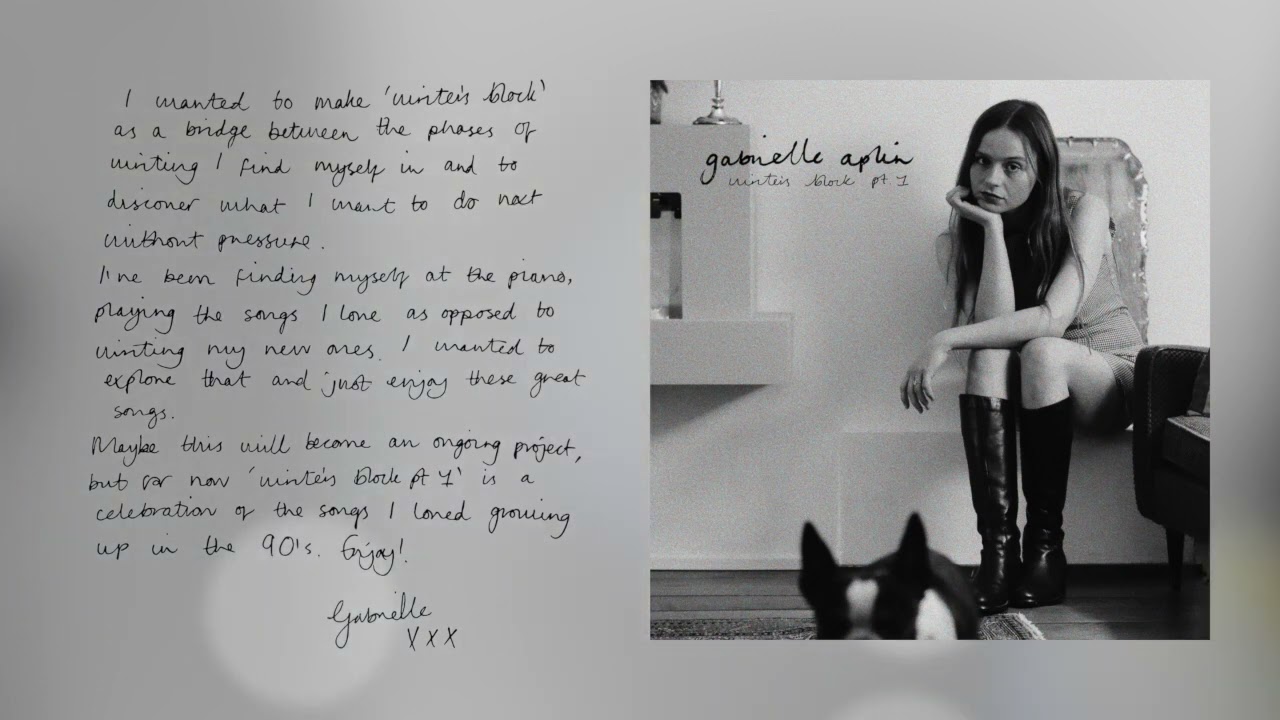 I wanted to make 'writer's block'
as a bridge between the phases of
writing I find myself in and to
discover what I want to do next
without pressure.
I've been finding myself at the piano,
playing the songs I love as opposed to
writing my new ones. I wanted to
explore that and just enjoy these great
songs.
Maybe this will become an ongoing project,
but for now 'writer's block pt 1' is a
celebration of the songs I loved growing
up in the 90's. Enjoy!
Gabrielle
XXX
gabrielle aplin
writer's block pt. 1